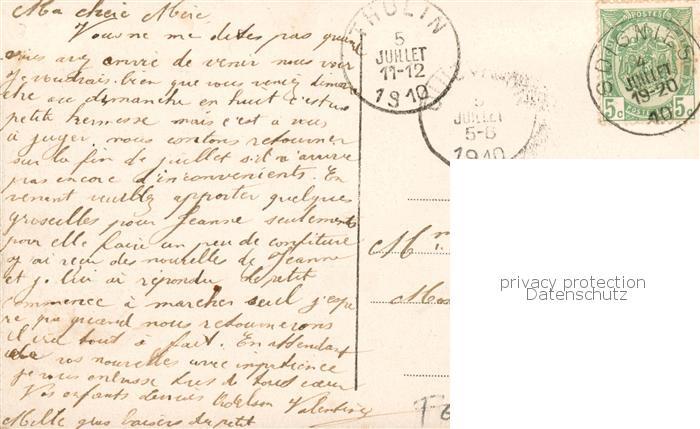 Ma chère Mère,
Vous ne me dites pas quand
vous avez envie de venir nous voir
je voudrais bien que vous venez diman
che ou dimanche en huit c'est
petit kermesse mais c'est à vous
à juger nous contons retourner
sur la fin de juillet s'il n'arrive
pas encore d'inconvenients. En
venant veuillez apporter quelques
groseilles pour Jeanne seulements
pour elle faire un peu de confiture
j'ai reçu des nouvelles de Jeanne
et j. lui ai répondu le petit
commence à marcher seul j'espè
re que quand nous retournerons
il ira tout à fait. En attendant
de vos nouvelles avec impatience
je vous embrasse tres de tout cœur
Vos enfants Valentine
Mille gros baisers du petit
THULIN
5
JUILLET
11-12
1910
5
JUILLET
5-6
1910
POSTES
5c 5c
SOIGNIES
4
JUILLET
19-20
10
Mr
privacy protection
Datenschutz